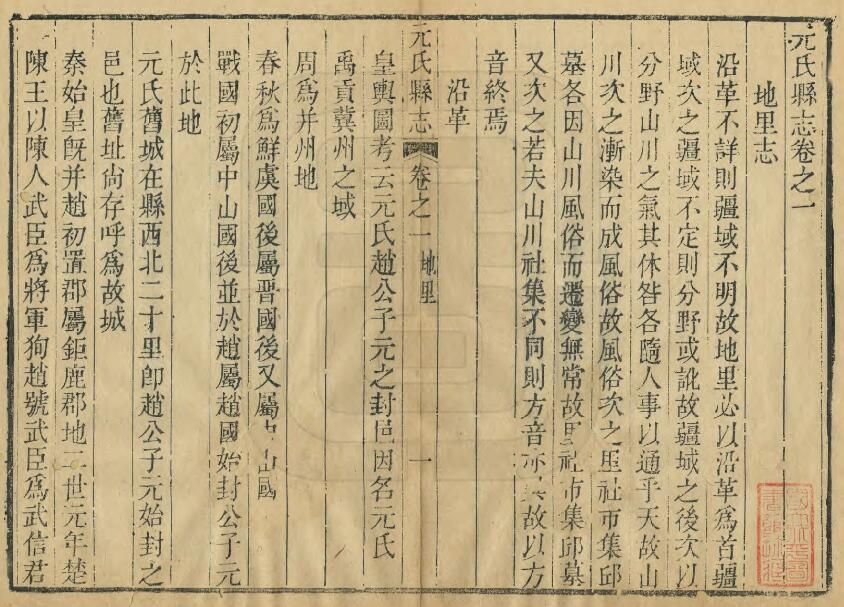 元氏縣志卷之一
地里志
沿革不詳則疆域不明故地里必以沿革爲首疆
域次之疆域不定則分野或訛故疆域之後次以
分野山川之氣其休咎各隨人事以通乎天故山
川次之漸染而成風俗故風俗次之里社市集邱
墓各因山川風俗而遷變無常故里社市集邱墓
又次之若夫山川社集不同則方音亦異故以方
音終焉
沿革
元氏縣志
卷之一
地里
一
皇輿圖考云元氏趙公子元之封邑因名元氏
禹貢冀州之域
周爲并州地
春秋爲鮮虞國後屬晉國後又屬中山國
戰國初屬中山國後並於趙屬趙國始封公子元
於此地
元氏舊城在縣西北二十里卽趙公子元始封之
邑也舊址尙存呼爲故城
秦始皇旣并趙初置郡屬鉅鹿郡地二世元年楚
陳王以陳人武臣爲將軍狥趙號武臣爲武信君